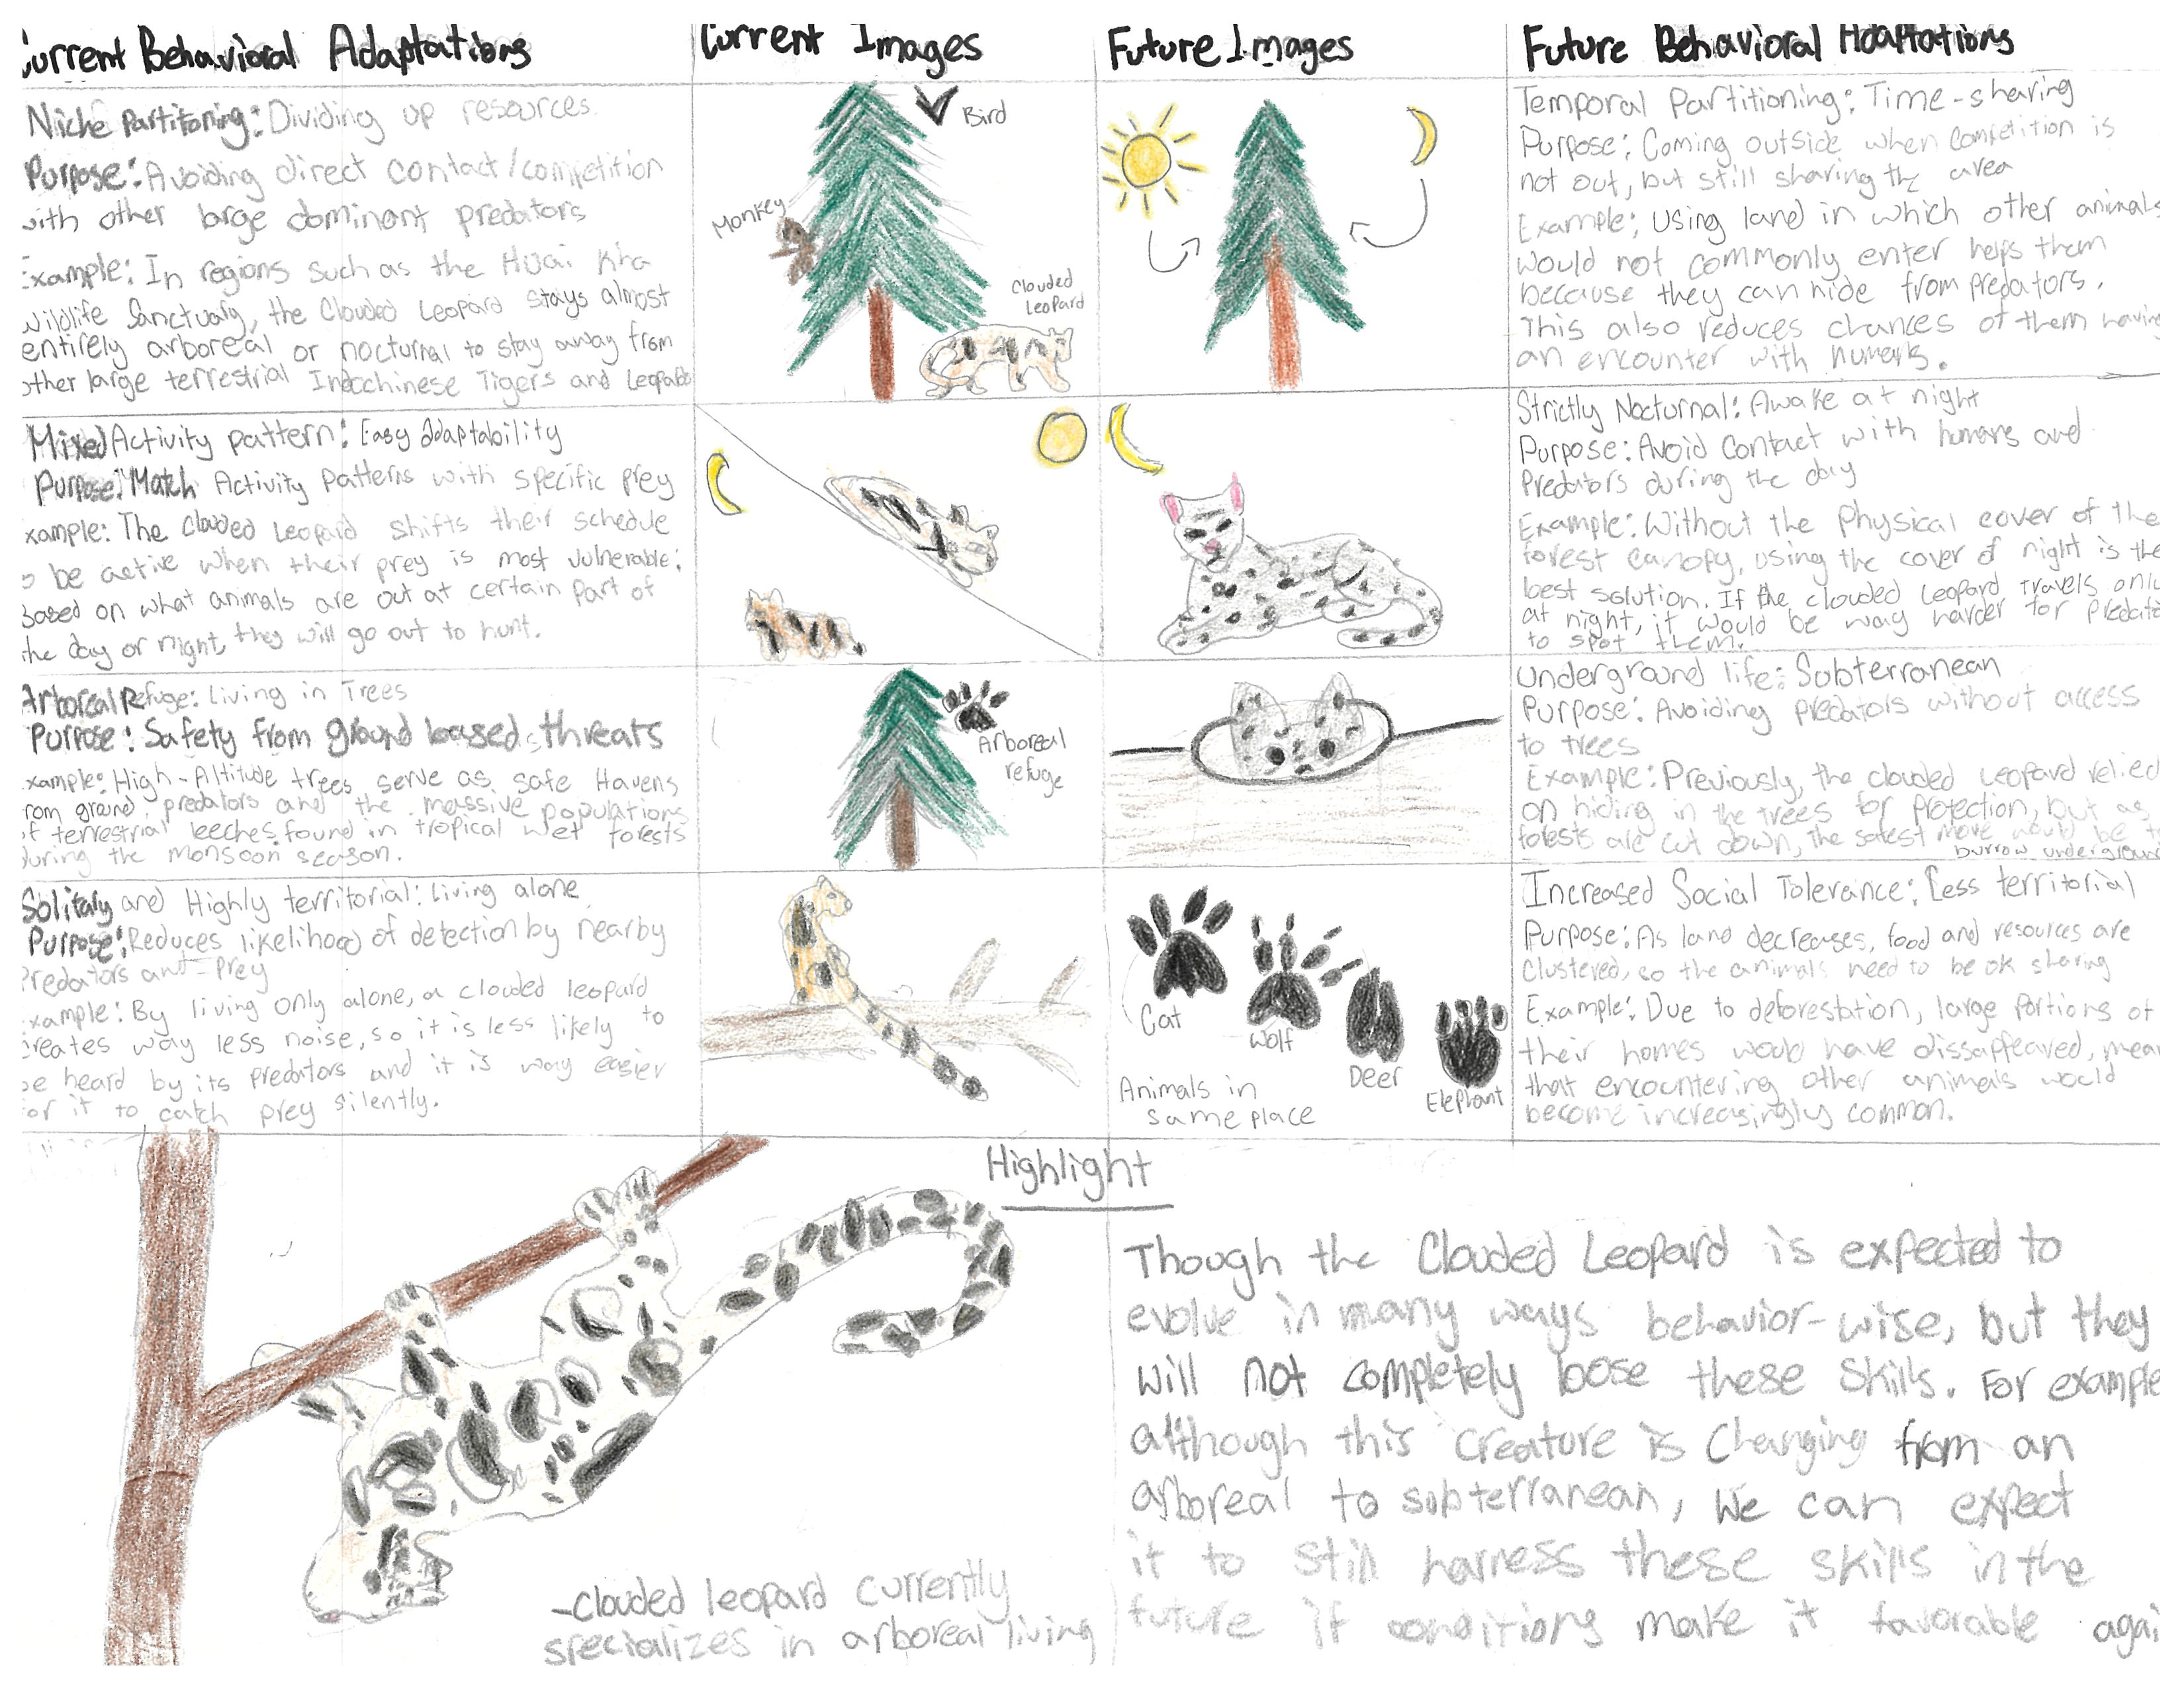 Current Behavioral Adaptations
Niche Partitoning: Dividing up resources.
Purpose: Avoiding direct contact/competition
with other large dominant predators
Example: In regions such as the Huai Kha
Wildlife Sanctuaty, the Clouded Leopard stays almost
entirely arboreal or nocturnal to stay away from
other large terrestrial Indochinese Tigers and Leopards
Mixed Activity pattern: Easy adaptability
Purpose: Match Activity patterns with specific prey
Example: The clouded leopard shifts their schedule
to be active when their prey is most vulnerable;
based on what animals are out at certain part of
the day or night, they will go out to hunt.
Arboreal Refuge: Living in Trees
Purpose: Safety from ground based threats
Example: High-Altitude trees serve as safe Havens
from ground predators and the massive populations
of terrestrial leeches found in tropical wet forests
during the monsoon season.
Solitary and Highly territorial: Living alone
Purpose: Reduces likelihood of detection by nearby
Predators and Prey
Example: By living only alone, a clouded leopard
creates way less noise, so it is less likely to
be heard by its predators and it is way easier
for it to catch prey silently.
Current Images
Bird
Monkey
Clouded
Leopard
Arboreal
refuge
Future Images
Cat
Wolf
Deer
Elephant
Animals in
same place
Future Behavioral Adaptations
Temporal Partitioning: Time-sharing
Purpose: Coming outside when competition is
not out, but still sharing the area
Example: Using land in which other animals
would not commonly enter helps them
because they can hide from predators.
This also reduces chances of them having
an encounter with humans.
Strictly Nocturnal: Awake at night
Purpose: Avoid Contact with humans and
Predators during the day
Example: Without the Physical cover of the
forest canopy, using the cover of night is the
best solution. If the clouded leopard travels only
at night, it would be way harder for predato
to spot them.
Underground life: Subterranean
Purpose: Avoiding predators without access
to trees
Example: Previously, the clouded leopard relied
on hiding in the trees for protection, but as
forests are cut down, the safest move would be to
burrow underground
Increased Social Tolerance: Less territorial
Purpose: As land decreases, food and resources are
clustered, so the animals need to be ok sharing
Example: Due to deforestation, large portions of
their homes would have dissapfeaved, mean
that encountering other animals would
become increasingly common.
Highlight
-clouded leopard currently
specializes in arboreal living
Though the Clouded Leopard is expected to
evolve in many ways behavior-wise, but they
will not completely loose these skills. For example
although this creature is changing from an
arboreal to subterranean, we can expect
it to still harness these skills in the
future if conditions make it favorable agai